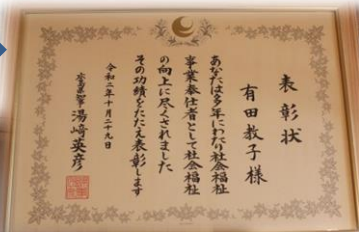 表彰状
有田教子様
あなたは多年にわたり社会福祉
事業奉仕者として社会福祉
の向上に尽くされました
その功績をたたえ表彰します
令和二年十月二十九日
広島県知事 湯﨑英彦